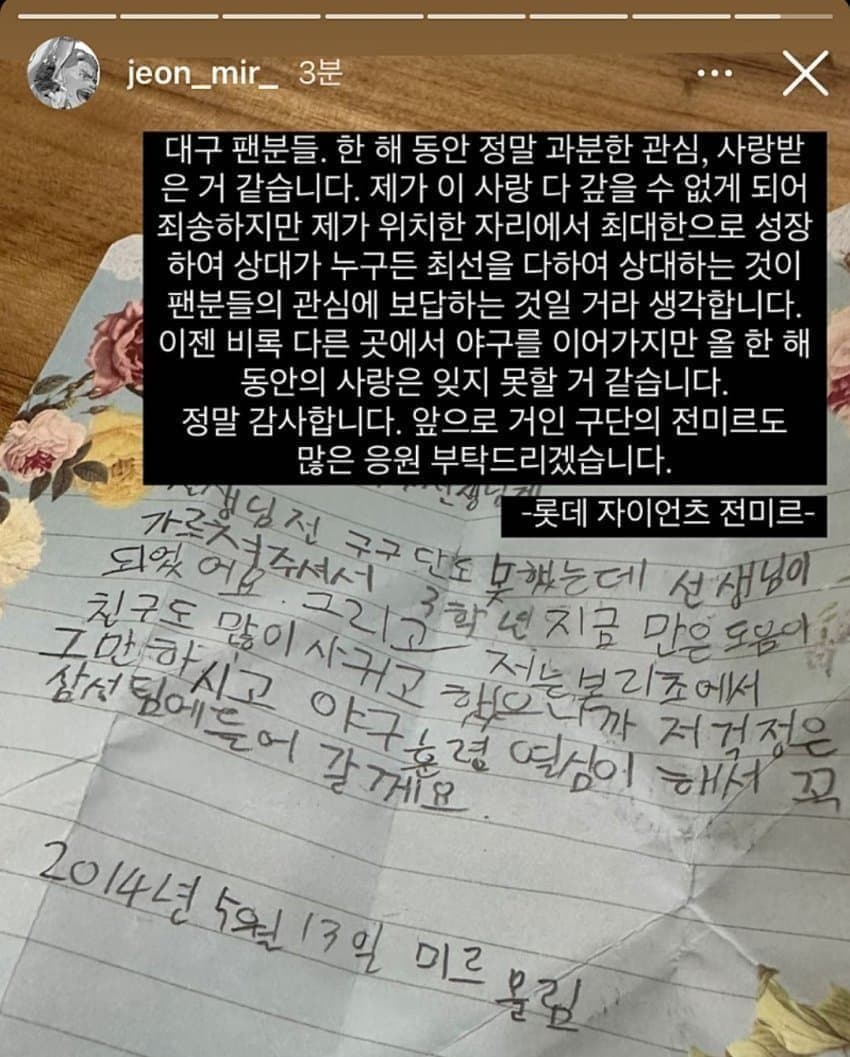 jeon_mir_ 3분
대구 팬분들. 한 해 동안 정말 과분한 관심, 사랑받
은 거 같습니다. 제가 이 사랑 다 갚을 수 없게 되어
죄송하지만 제가 위치한 자리에서 최대한으로 성장
하여 상대가 누구든 최선을 다하여 상대하는 것이
팬분들의 관심에 보답하는 것일 거라 생각합니다.
이젠 비록 다른 곳에서 야구를 이어가지만 올 한 해
동안의 사랑은 잊지 못할 거 같습니다.
정말 감사합니다. 앞으로 거인 구단의 전미르도
많은 응원 부탁드리겠습니다.
-롯데 자이언츠 전미르-
선생님께
선생님 전 구구단도 못했는데 선생님이
가르쳐주셔서 3학년 지금 만은 도움이
되었어요. 그리고 저는 본리초에서
친구도 많이 사귀고 했으니까 저 걱정은
그만하시고 야구 훈령 열심이 해서 꼭
삼성팀에 들어갈게요.
2014년 5월 13일 미르 올림